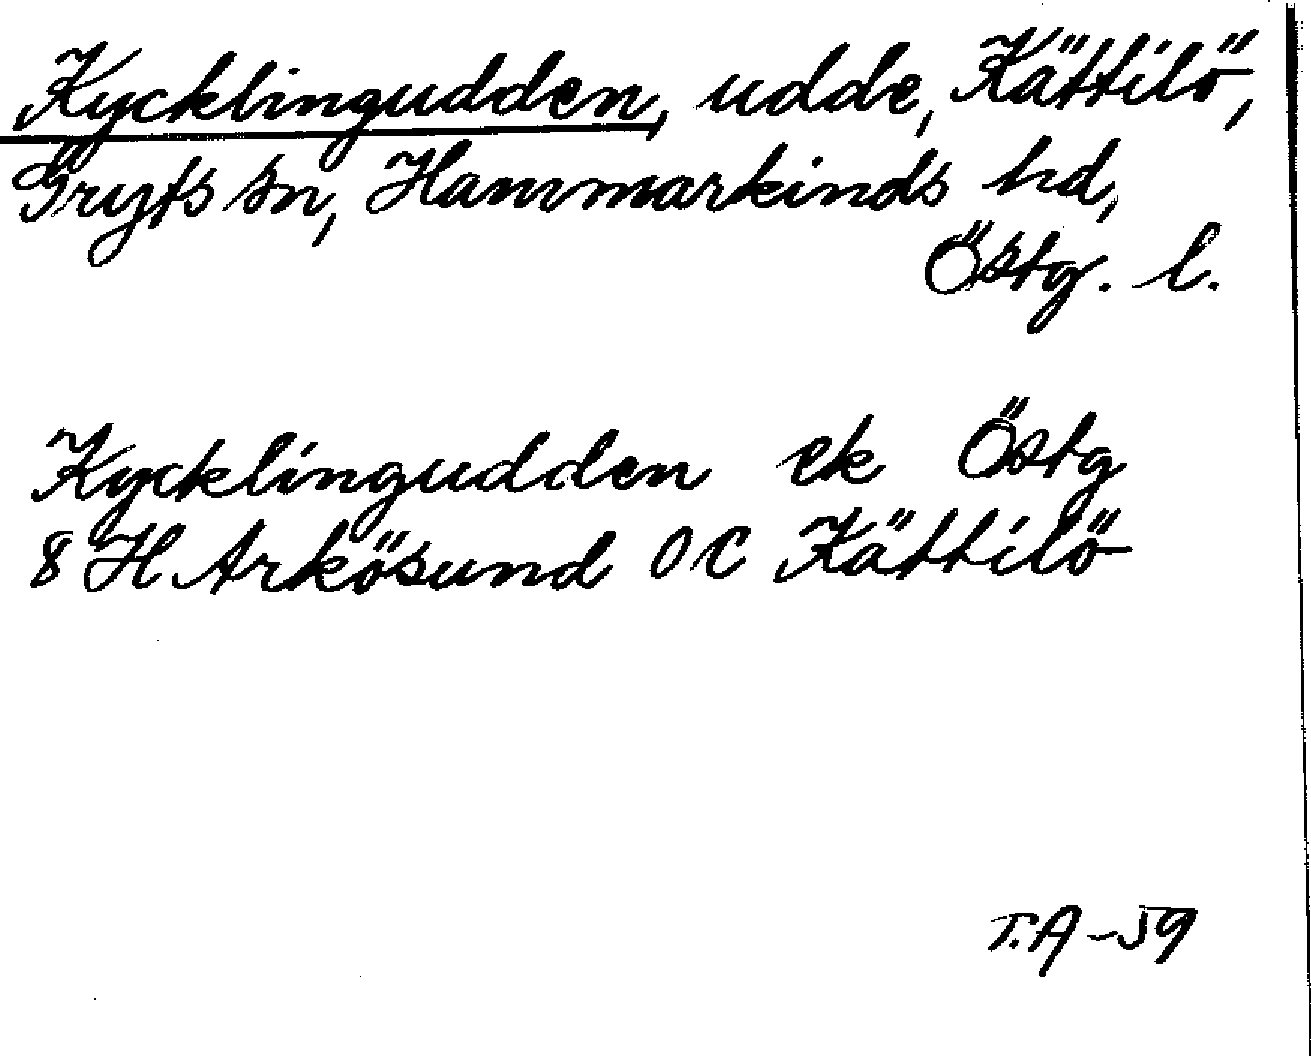 Kycklingudden, udde, Kättilö,
Gryts sn, Hammarkinds hd,
Östg. l.
Kycklingudden ek Östg
8 H Arkösund 0 C Kättilö
T.A-59